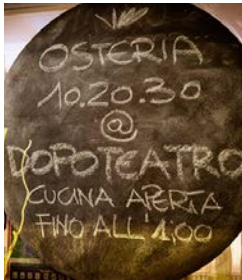 OSTERIA
10.20.30
@
DOPOTEATRO
CUCINA APERTA
FINO ALL'1,00